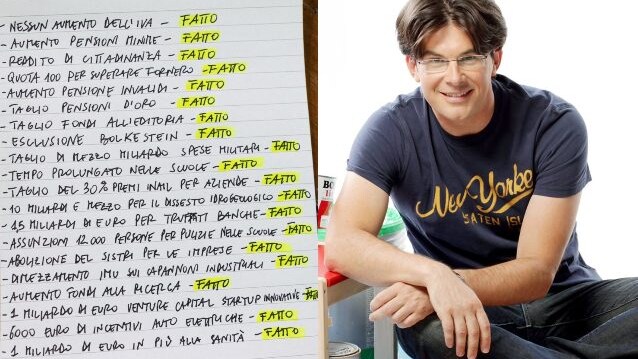 - NESSUN AUMENTO DELL'IVA - FATTO
- AUMENTO PENSIONI MINIME - FATTO
- REDDITO DI CITTADINANZA - FATTO
- QUOTA 100 PER SUPERARE FORNERO - FATTO
- AUMENTO PENSIONE INVALIDI - FATTO
- TAGLIO PENSIONI D'ORO - FATTO
- TAGLIO FONDI ALL'EDITORIA - FATTO
- ESCLUSIONE BOLKESTEIN - FATTO
- TAGLIO DI MEZZO MILIARDO SPESE MILITARI - FATTO
- TEMPO PROLUNGATO NELLE SCUOLE - FATTO
- TAGLIO DEL 30% PREMI INAIL PER AZIENDE - FATTO
- 10 MILIARDI E MEZZO PER IL DISSESTO IDROGEOLOGICO - FATTO
- 1,5 MILIARDI DI EURO PER TRUFFATI BANCHE - FATTO
- ASSUNZIONI 12000 PERSONE PER PULIZIE NELLE SCUOLE - FATTO
- ABOLIZIONE DEL SISTRI PER LE IMPRESE - FATTO
- DIMEZZAMENTO IMU SUI CAPANNONI INDUSTRIALI - FATTO
- AUMENTO FONDI ALLA RICERCA - FATTO
- 1 MILIARDO DI EURO VENTURE CAPITAL STARTUP INNOVATIVE - FATTO
- 6000 EURO DI INCENTIVI AUTO ELETTRICHE - FATTO
- 1 MILIARDO DI EURO IN PIÙ ALLA SANITÀ - FATTO
New Yorke
STATEN ISL
BO